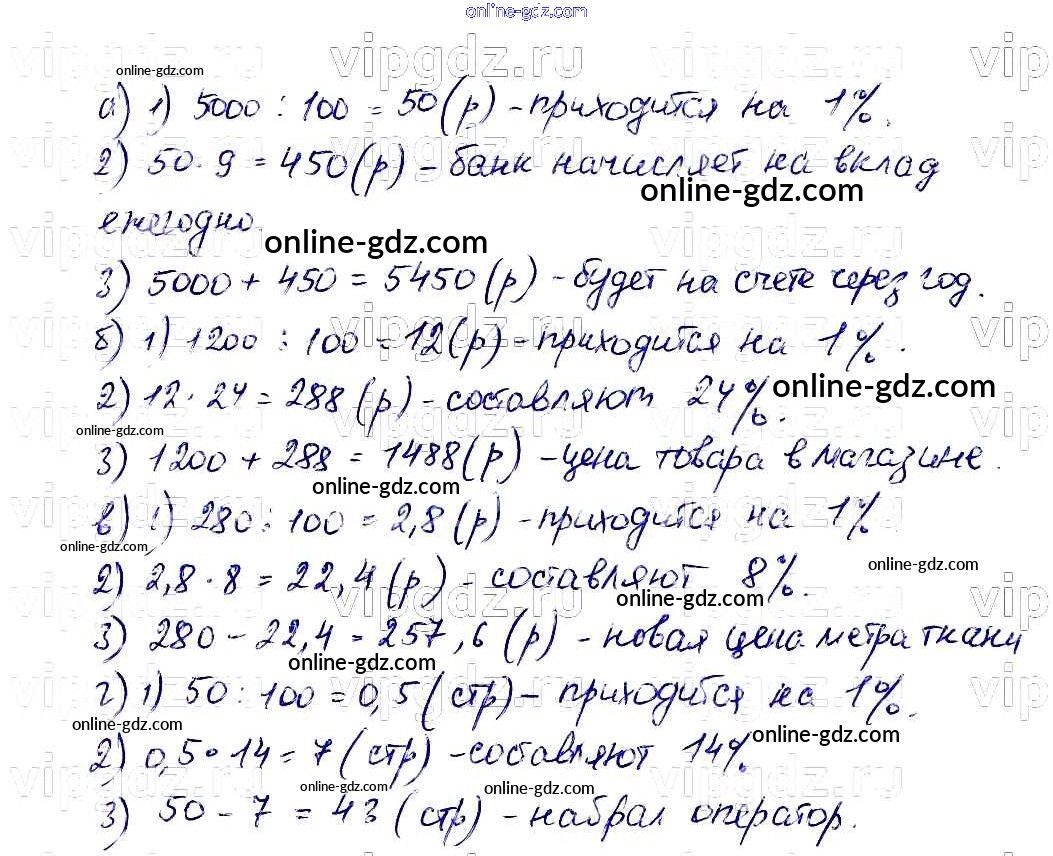 online-gdz.com
vipgdz.ru vipgdz.ru vip
online-gdz.com
а) 1) 5000 : 100 = 50 (р) - приходится на 1%.
2) 50 · 9 = 450 (р) - банк начисляет на вклад
online-gdz.com
ежегодно.
online-gdz.com
3) 5000 + 450 = 5450 (р) - будет на счете через год.
б) 1) 1200 : 100 = 12 (р) - приходится на 1%.
2) 12 · 24 = 288 (р) - составляют 24%.
online-gdz.com
online-gdz.com
3) 1200 + 288 = 1488 (р) - цена товара в магазине.
online-gdz.com
в) 1) 280 : 100 = 2,8 (р) - приходится на 1%
online-gdz.com
online-gdz.com
2) 2,8 · 8 = 22,4 (р) - составляют 8%.
online-gdz.com
3) 280 - 22,4 = 257,6 (р) - новая цена метра ткани
online-gdz.com
г) 1) 50 : 100 = 0,5 (стр) - приходится на 1%.
online-gdz.com
online-gdz.com
2) 0,5 · 14 = 7 (стр) - составляют 14%
online-gdz.com online-gdz.com
3) 50 - 7 = 43 (стр) - набрал оператор.